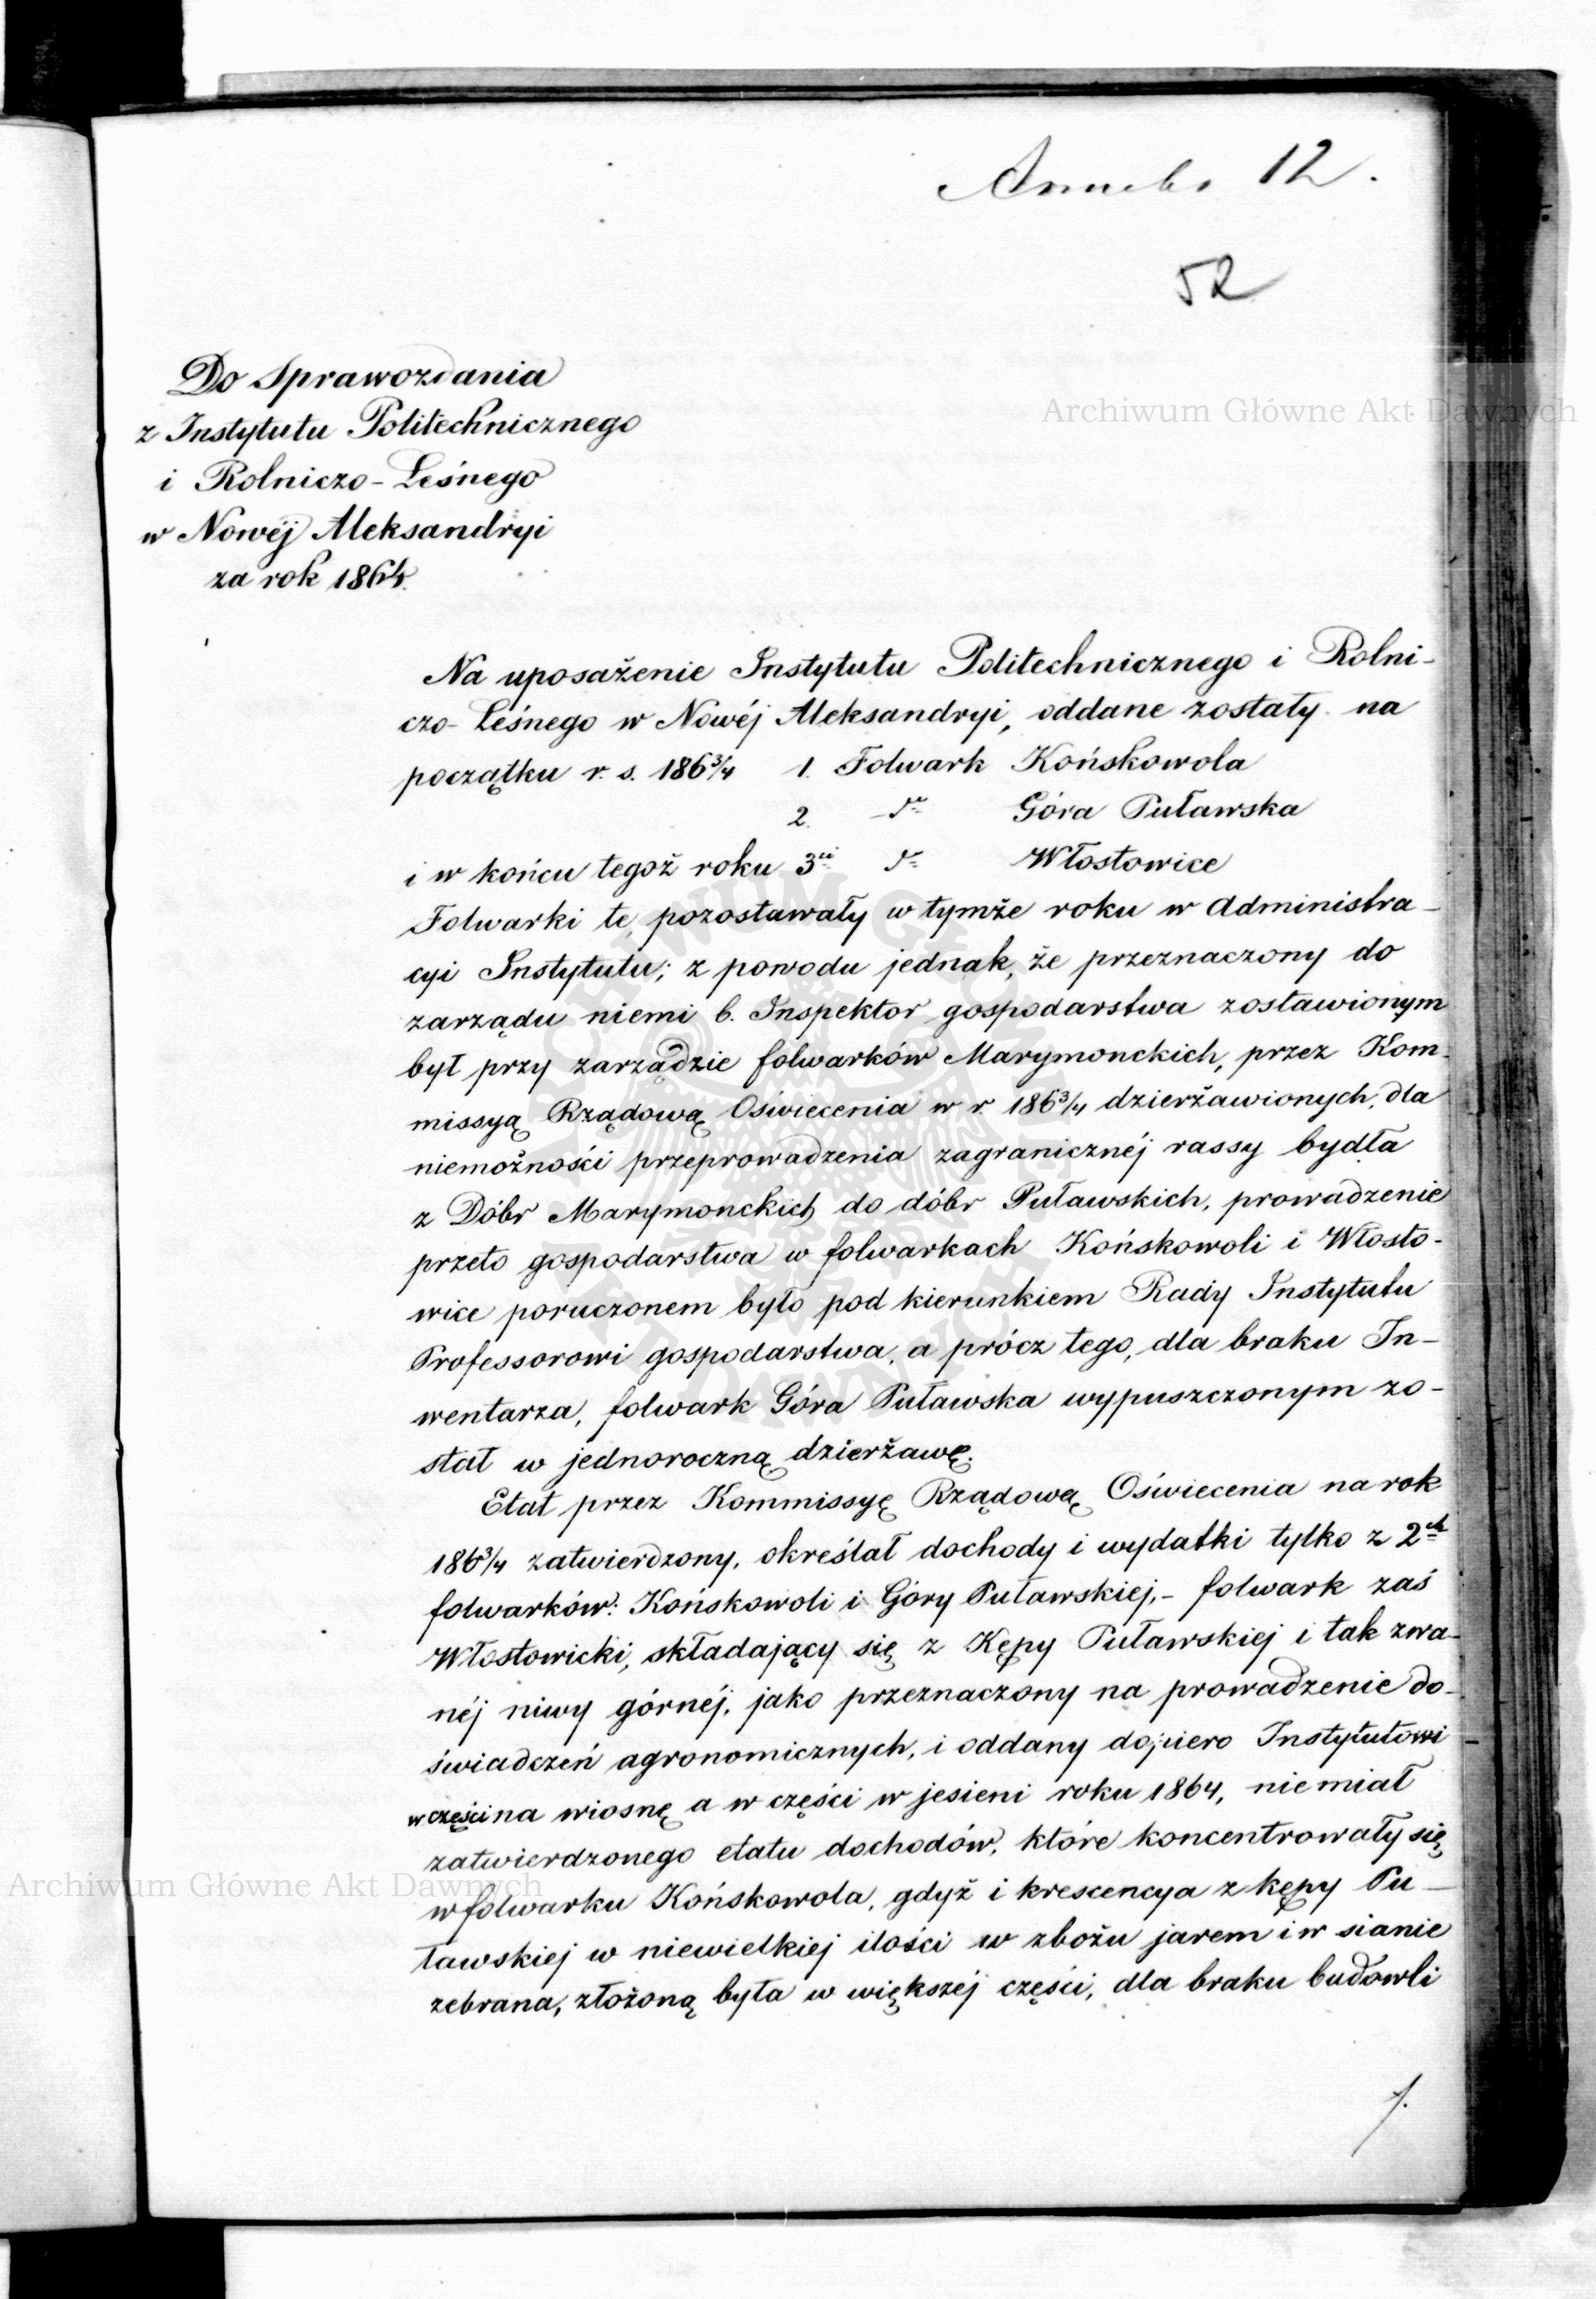 12.
52
Do Sprawozdania
z Instytutu Politechnicznego
i Rolniczo-Leśnego
w Nowéj Aleksandryi
za rok 1864.
Archiwum Główne Akt Dawnych
Na uposażenie Instytutu Politechnicznego i Rolni-
czo-Leśnego w Nowéj Aleksandryi, oddane zostały na
początku r. s. 186¾ 1. Folwark Końskowola
2. - dto Góra Puławska
i w końcu tegoż roku 3ci dto Włostowice
Folwarki te, pozostawały w tymże roku w Administra-
cyi Instytutu; z powodu jednak, że przeznaczony do
zarządu niemi b. Inspektor gospodarstwa zostawionym
był przy zarządzie folwarków Marymonckich, przez Kom-
missyą Rządową Oświecenia w r. 186¾ dzierżawionych, dla
niemożności przeprowadzenia zagranicznéj rassy bydła
z Dóbr Marymonckich do dóbr Puławskich, prowadzenie
przeto gospodarstwa w folwarkach Końskowoli i Włosto-
wice poruczonem było pod kierunkiem Rady Instytutu
Professorowi gospodarstwa, a prócz tego, dla braku In-
wentarza, folwark Góra Puławska wypuszczonym zo-
stał w jednoroczną dzierżawę.
Etat przez Kommissyę Rządową Oświecenia na rok
186¾ zatwierdzony, określał dochody i wydatki tylko z 2ch
folwarków: Końskowoli i Góry Puławskiej, - folwark zaś
Włostowicki, składający się z Kępy Puławskiej i tak zwa-
néj niwy górnéj, jako przeznaczony na prowadzenie do-
świadczeń agronomicznych, i oddany dopiero Instytutowi
w części na wiosnę a w części w jesieni roku 1864, nie miał
zatwierdzonego etatu dochodów, które koncentrowały się
w folwarku Końskowola, gdyż i krescencya z kępy Pu-
ławskiej w niewielkiej ilości w zbożu jarem i w sianie
zebrana, złożoną była w większéj części, dla braku budowli
Archiwum Główne Akt Dawnych